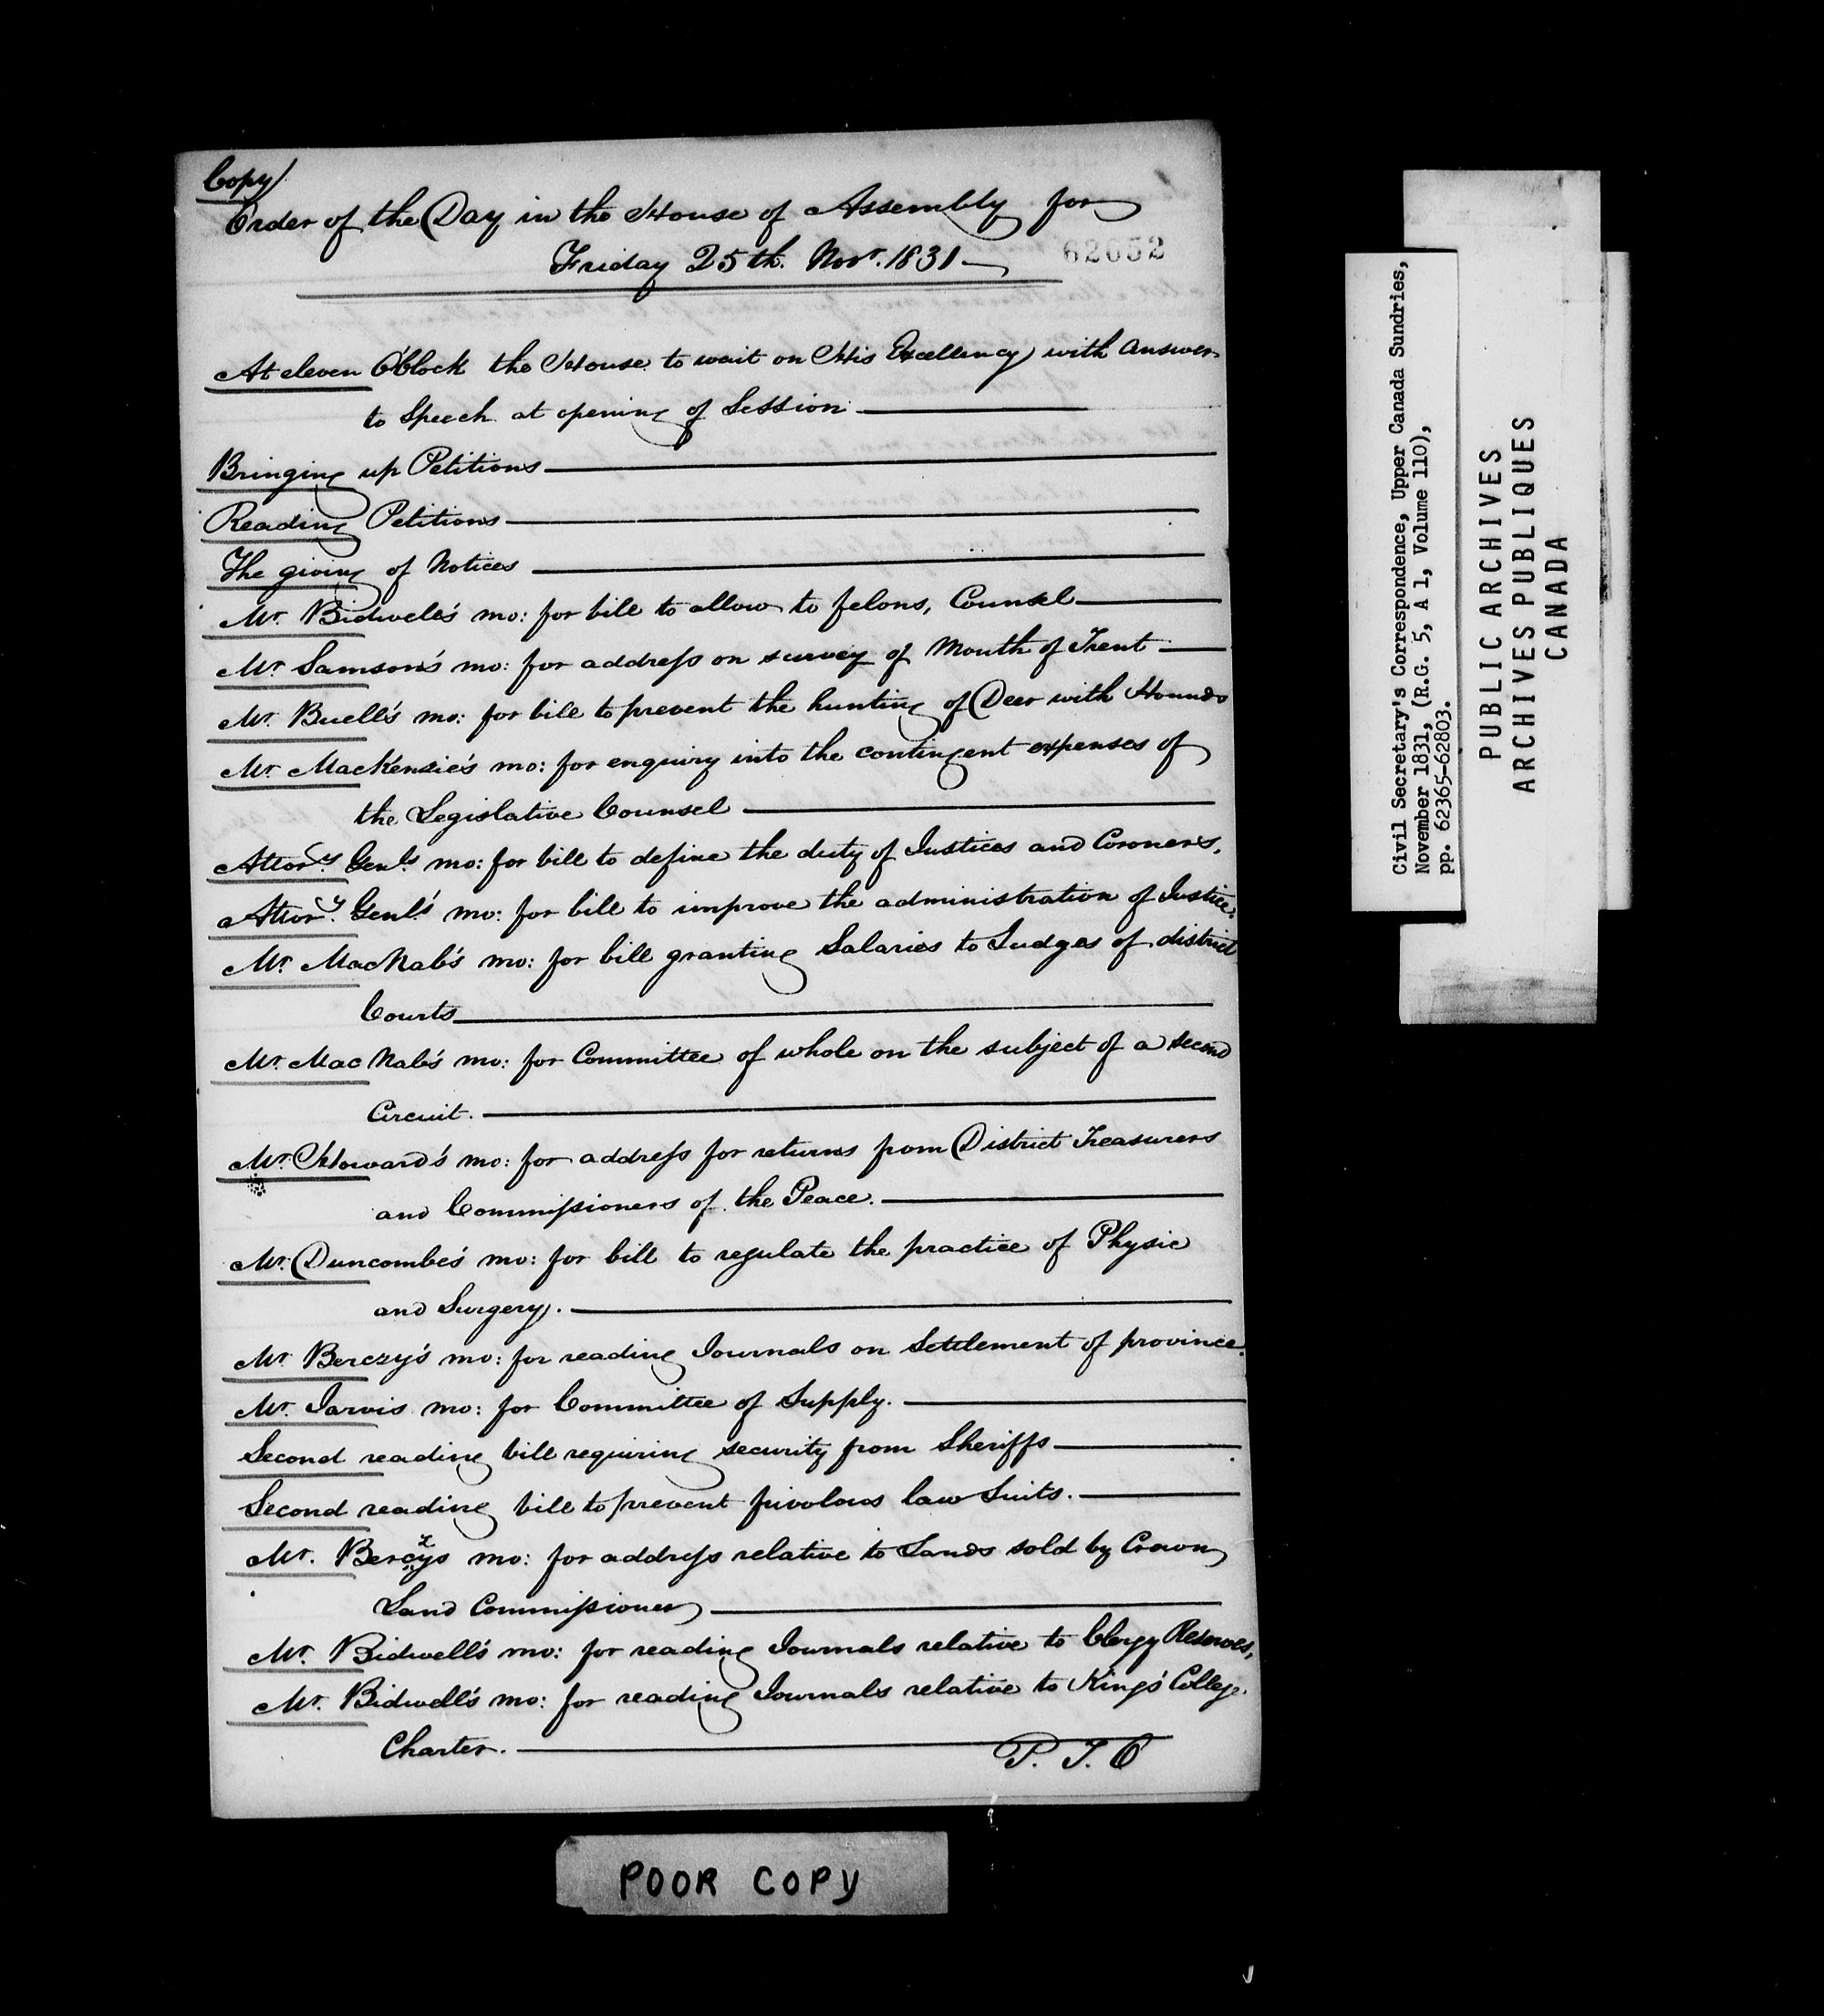 Copy/
Order of the Day in the House of Assembly for
Friday 25th. Novr. 1831
62652
At eleven O'Clock the House to wait on His Excellency with Answer
to Speech at opening of Session
Bringing up Petitions
Reading Petitions
The giving of Notices
Mr. Bidwell's mo: for bill to allow to felons, Counsel
Mr. Samson's mo: for address on survey of Mouth of Trent
Mr. Buell's mo: for bill to prevent the hunting of Deer with Hounds
Mr. MacKenzie's mo: for enquiry into the contingent expenses of
the Legislative Counsel
Attory. Genls. mo: for bill to define the duty of Justices and Coroners,
Attory. Genl's mo: for bill to improve the administration of Justice.
Mr. MacNab's mo: for bill granting Salaries to Judges of district
Courts
Mr. MacNab's mo: for Committee of whole on the subject of a second
Circuit.
Mr. Howard's mo: for address for returns from District Treasurers
and Commissioners of the Peace.
Mr. Duncombe's mo: for bill to regulate the practice of Physic
and Surgery.
Mr. Berczy's mo: for reading Journals on Settlement of province.
Mr. Jarvis mo: for Committee of Supply.
Second reading bill requiring security from Sheriffs
Second reading bill to prevent frivolous law Suits.
Mr. Berczys mo: for address relative to Lands sold by Crown
Land Commissioner
Mr. Bidwell's mo: for reading Journals relative to Clergy Reserves,
Mr. Bidwell's mo: for reading Journals relative to King's College
Charter.
P. T. O
Civil Secretary's Correspondence, Upper Canada Sundries,
November 1831, (R.G. 5, A 1, Volume 110),
pp. 62365-62803.
PUBLIC ARCHIVES
ARCHIVES PUBLIQUES
CANADA
POOR COPY